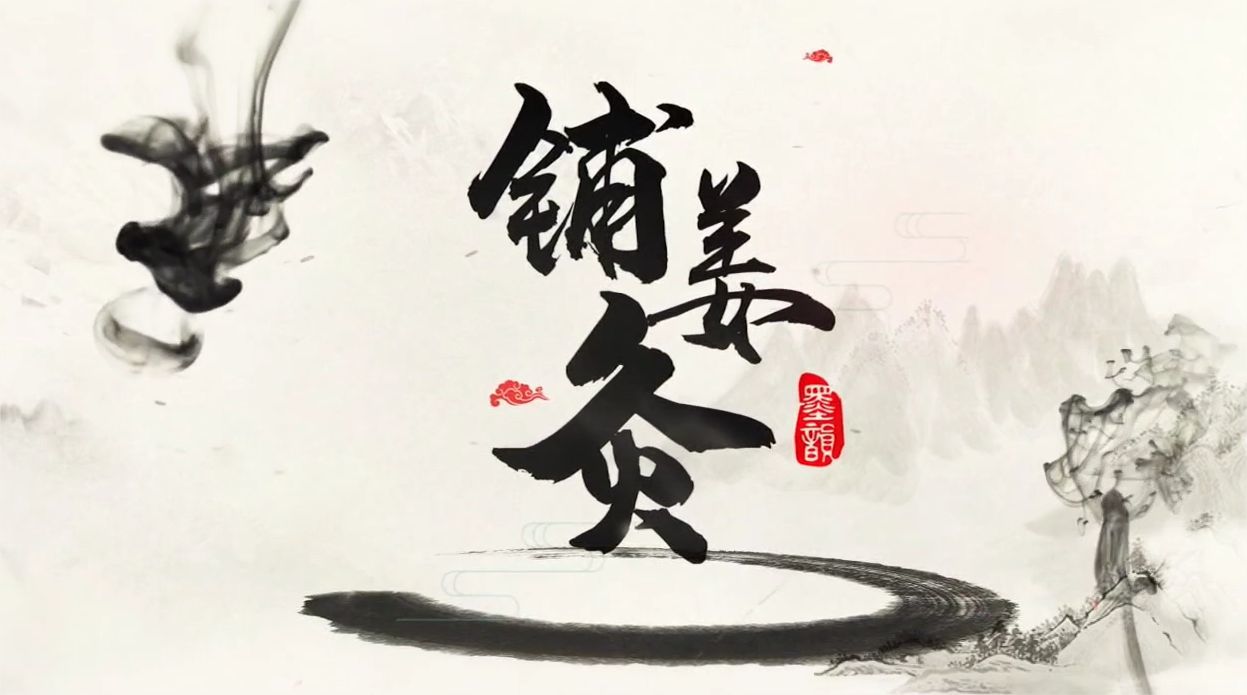 铺姜灸
墨韻